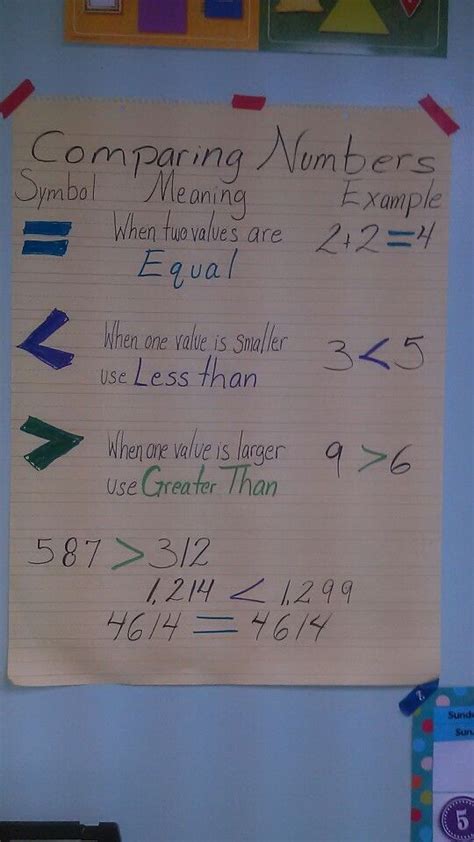 Comparing Numbers
Symbol Meaning Example
= When two values are Equal 2+2=4
< When one value is smaller use Less than 3<5
> When one value is larger use Greater Than 9>6
587 > 312
1,214 < 1,299
4614 = 4614
5